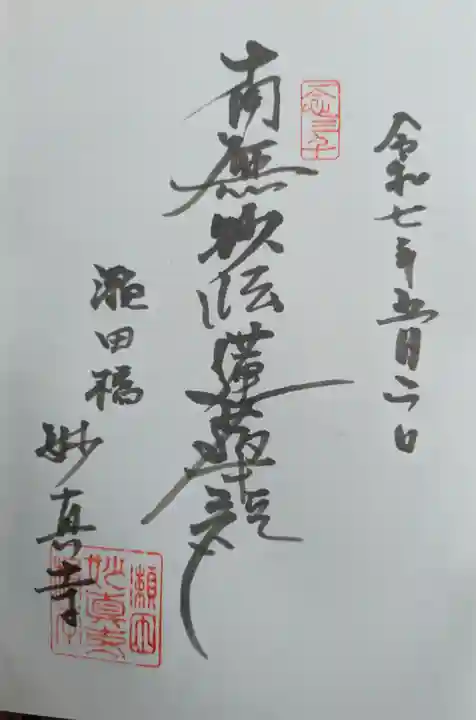 令和七年五月六日
一念三千
南無妙法蓮華経
瀬田橋
妙真寺
瀬田
妙真寺